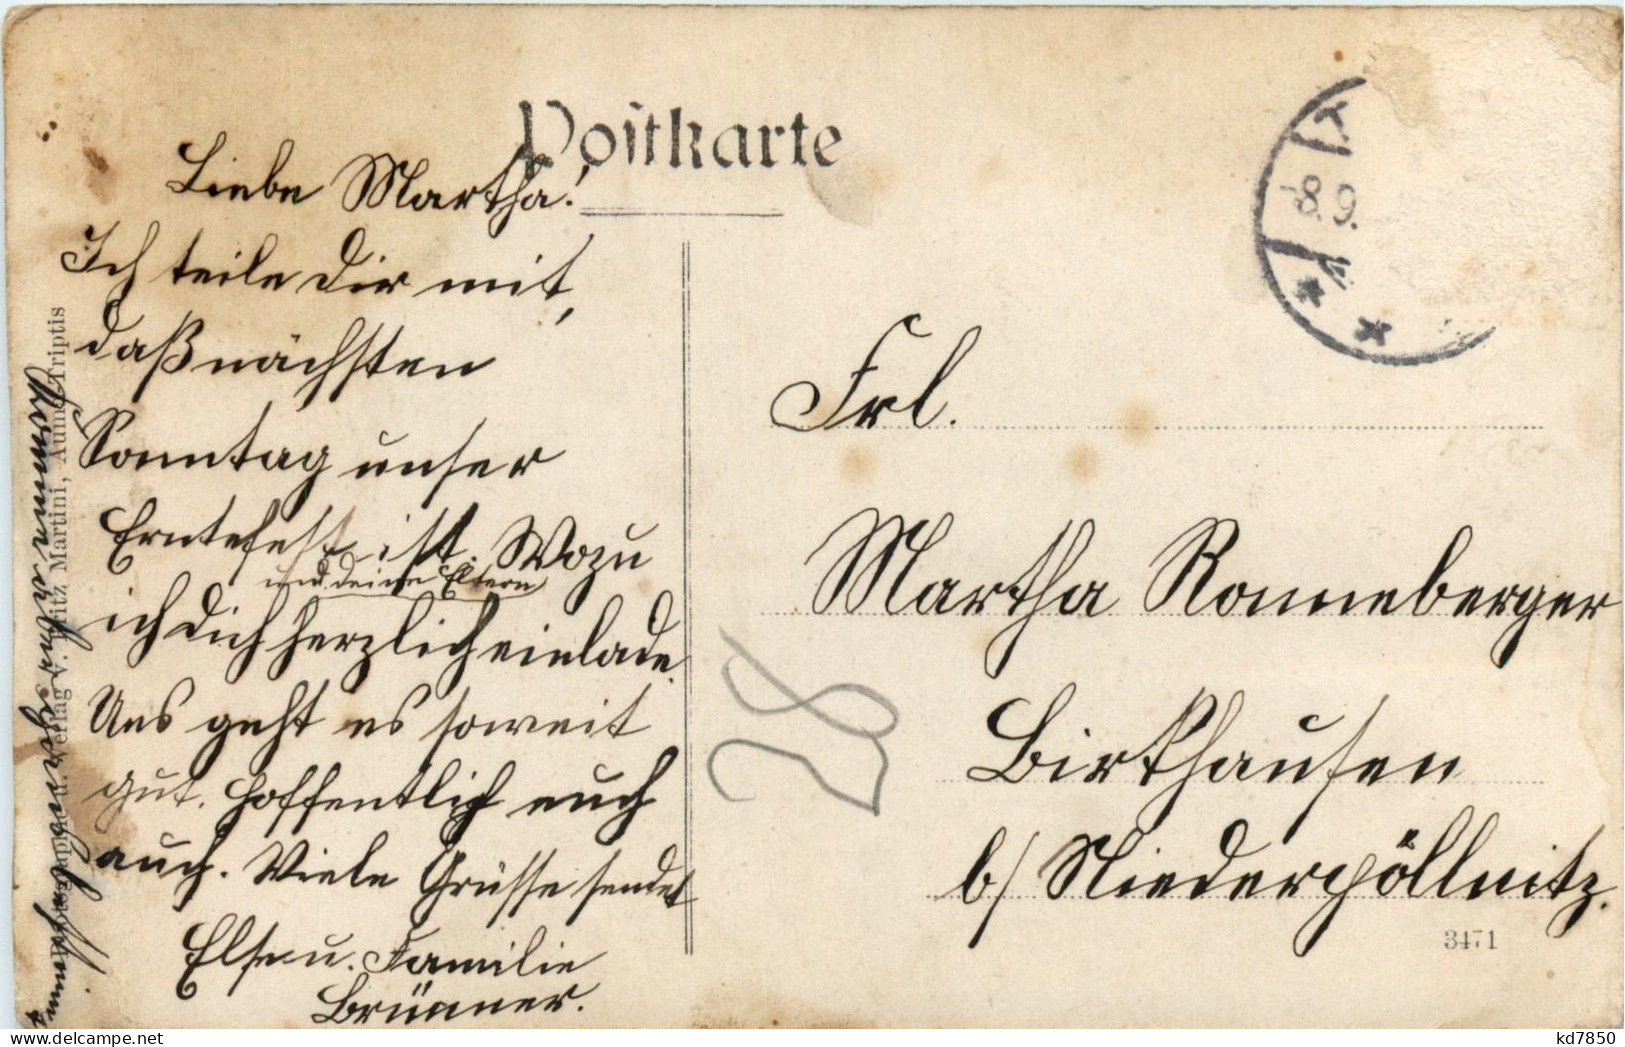 Postkarte
Liebe Martha!
Ich teile Dir mit,
daß nächsten
Sonntag unser
Erntefest ist. Wozu
und deine Eltern
ich Dich herzlich einlade.
Uns geht es soweit
gut. Hoffentlich euch
auch. Viele Grüsse sendet
Else u. Familie
Brünner.
Verlag v. Fritz Martini, Auma-Triptis
8.9.
Frl.
Martha Ronneberger
Birkhausen
b/ Niederpöllnitz.
28
3471
kd7850